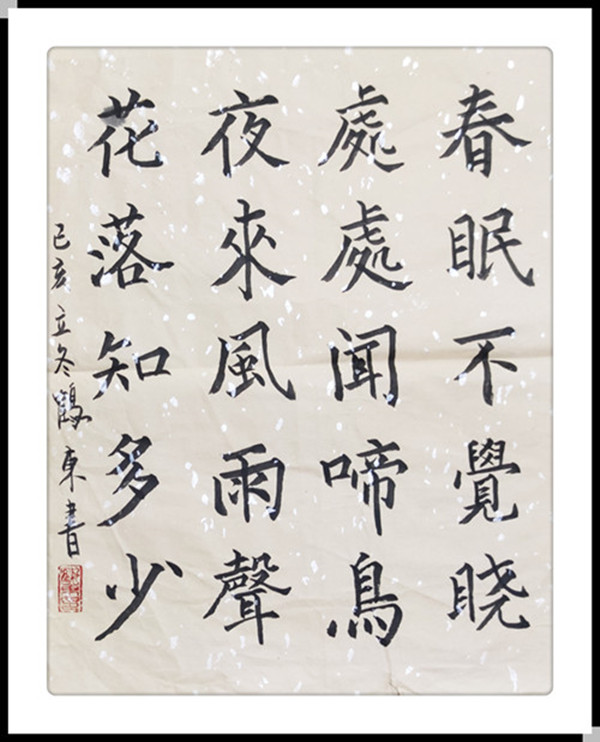 春眠不覺晓
處處闻啼鳥
夜來風雨聲
花落知多少
己亥立冬鶴東書